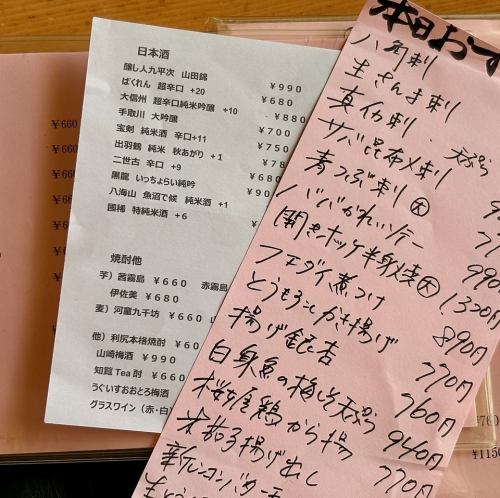 日本酒
醸し人九平次 山田錦 ¥990
ばくれん 超辛口 +20 ¥680
大信州 超辛口純米吟醸 +10 ¥880
手取川 大吟醸 ¥700
宝剣 純米酒 辛口+11 ¥750
出羽鶴 純米 秋あがり +1 ¥780
二世古 辛口 +9
黒龍 いっちょらい純吟
八海山 魚沼で候 純米酒 +1
國稀 特純米酒 +6
焼酎他
芋）茜霧島 ¥660 赤霧島
伊佐美 ¥680
麦）河童九千坊 ¥660
他）利尻本格焼酎 ¥60
山崎梅酒 ¥990
知覧Tea酎 ¥660
うぐいすおおとろ梅酒
グラスワイン（赤・白）
本日おす
八角刺
生さんま刺
真イカ刺
サバ昆布〆刺
青つぶ刺 大
ババがれいソテー
開きホッケ半身焼 大 1,300円
フエダイ煮つけ 890円
とうもろこしかき揚げ 770円
揚げ銀杏 760円
白身魚の梅しそ天ぷら 940円
桜姫鶏から揚 770円
米茄子揚げ出し
新レンコンバター
¥660
¥660
¥660
¥760
¥1150